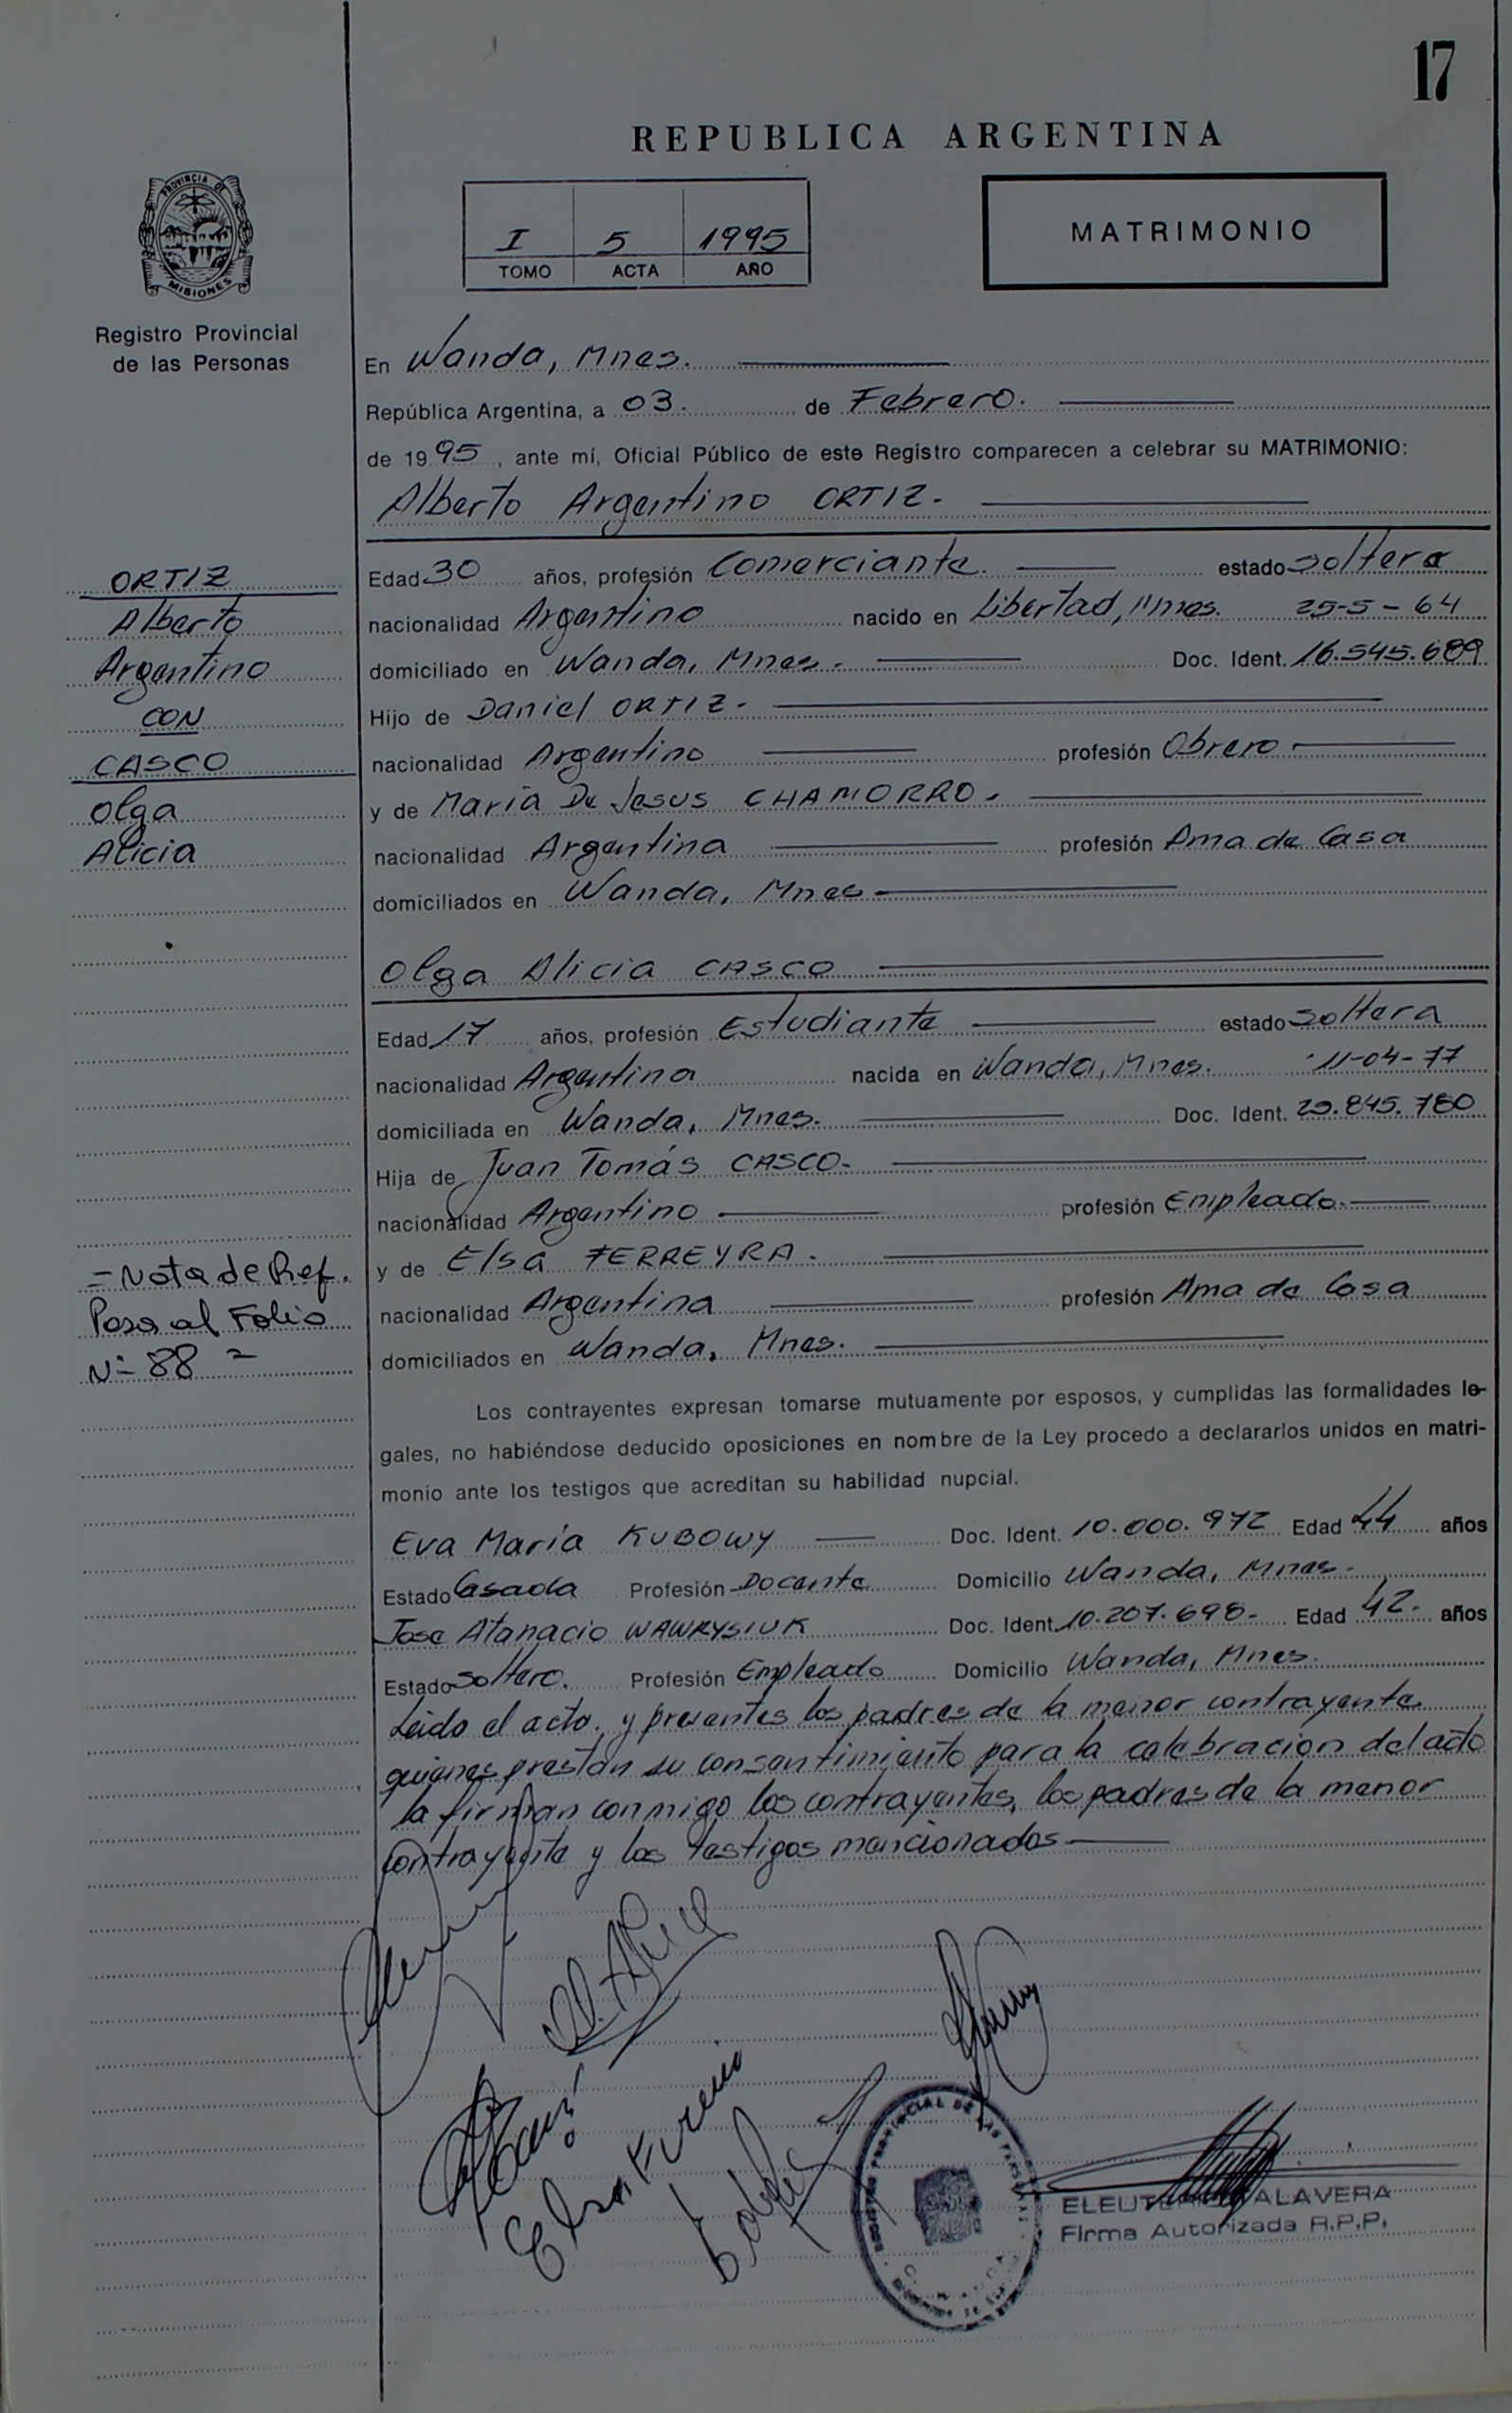 17
REPUBLICA ARGENTINA
PROVINCIA DE
MISIONES
Registro Provincial
de las Personas
I 5 1995
TOMO ACTA AÑO
MATRIMONIO
En Wanda, Mnes.
República Argentina, a 03. de Febrero.
de 1995, ante mí, Oficial Público de este Registro comparecen a celebrar su MATRIMONIO:
Alberto Argentino ORTIZ.
ORTIZ
Alberto
Argentino
CON
CASCO
Olga
Alicia
Edad 30 años, profesión Comerciante. estado soltero
nacionalidad Argentino nacido en Libertad, Mnes. 25-5-64
domiciliado en Wanda, Mnes. Doc. Ident. 16.545.689
Hijo de Daniel ORTIZ.
nacionalidad Argentino profesión Obrero.
y de María De Jesus CHAMORRO.
nacionalidad Argentina profesión Ama de Casa
domiciliados en Wanda, Mnes
Olga Alicia CASCO
Edad 17 años, profesión Estudiante estado soltera
nacionalidad Argentina nacida en Wanda, Mnes. 11-04-77
domiciliada en Wanda, Mnes. Doc. Ident. 25.845.780
Hija de Juan Tomás CASCO.
nacionalidad Argentino profesión Empleado.
y de Elsa FERREYRA.
nacionalidad Argentina profesión Ama de Casa
domiciliados en Wanda, Mnes.
=Nota de Ref.
Pasa al Folio
Nº 88=
Los contrayentes expresan tomarse mutuamente por esposos, y cumplidas las formalidades le-
gales, no habiéndose deducido oposiciones en nombre de la Ley procedo a declararlos unidos en matri-
monio ante los testigos que acreditan su habilidad nupcial.
Eva María KUBOWY Doc. Ident. 10.000.972 Edad 44 años
Estado Casada Profesión Docente Domicilio Wanda, Mnes.
Jose Atanacio WAWRYSIUK Doc. Ident. 10.207.698- Edad 42. años
Estado soltero. Profesión Empleado Domicilio Wanda, Mnes.
Leído el acto. y presentes los padres de la menor contrayente
quienes prestan su consentimiento para la celebracion del acto
la firman conmigo los contrayentes, los padres de la menor
contrayente y los testigos mencionados
Elsa Ferreira
REGISTRO PROVINCIAL DE LAS PERSONAS
ALAVERA
Firma Autorizada R.P.P.